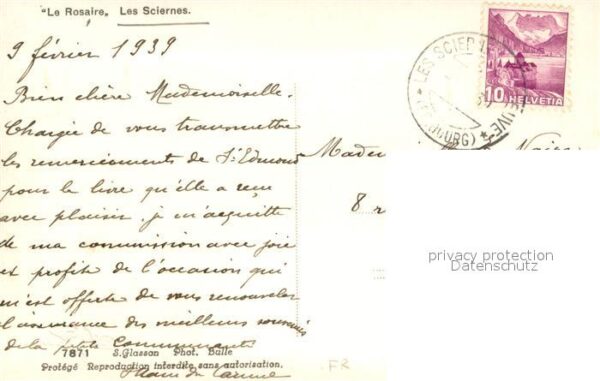 "Le Rosaire„ Les Sciernes.
9 février 1939
Bien chère Mademoiselle.
Chargée de vous transmettre
les remerciements de Sr Edmond
pour le livre qu'elle a reçu
avec plaisir, je m'acquitte
de ma commission avec joie
et profite de l'occasion qui
m'est offerte de vous renouveler
l'assurance des meilleurs souvenirs
de la petite Communauté
7871 S. Glasson Phot. Bulle
Protégé Reproduction interdite sans autorisation.
du Carmel
FR
LES SCIER
(FRIBOURG)
10 HELVETIA
Madem
8 r
privacy protection
Datenschutz